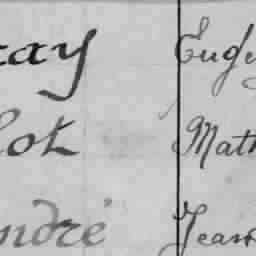 cay Euge
lot Math
ndré Jean